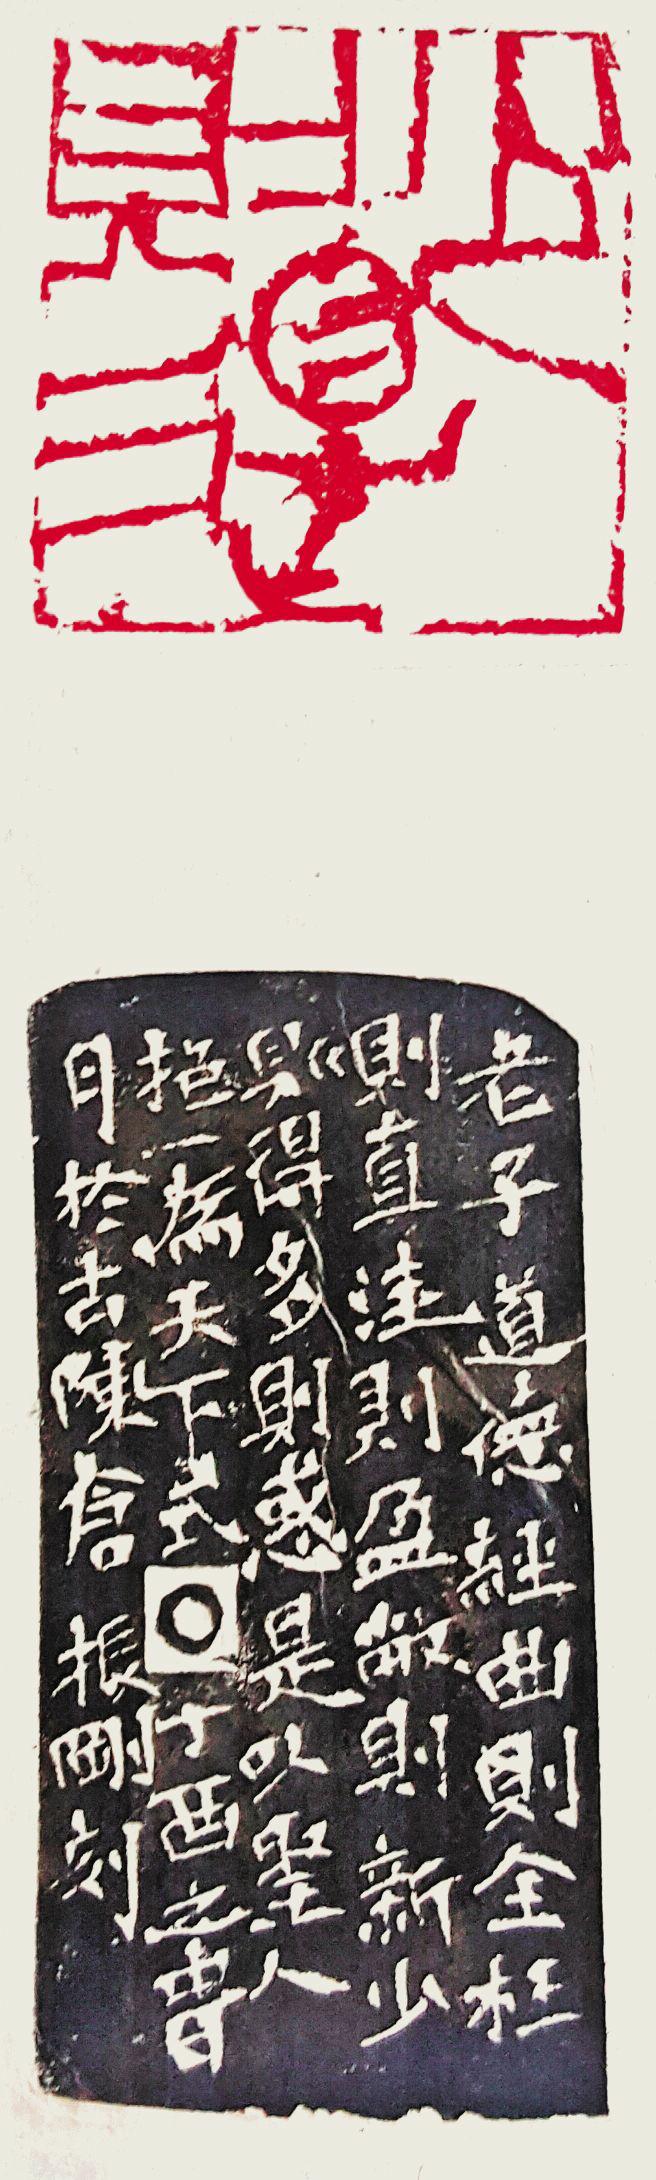 老子道德經曲則全枉
則直洼則盈敝則新少
則得多則惑是以聖人
抱一為天下式丁酉之春
月於古陳倉 振剛刻